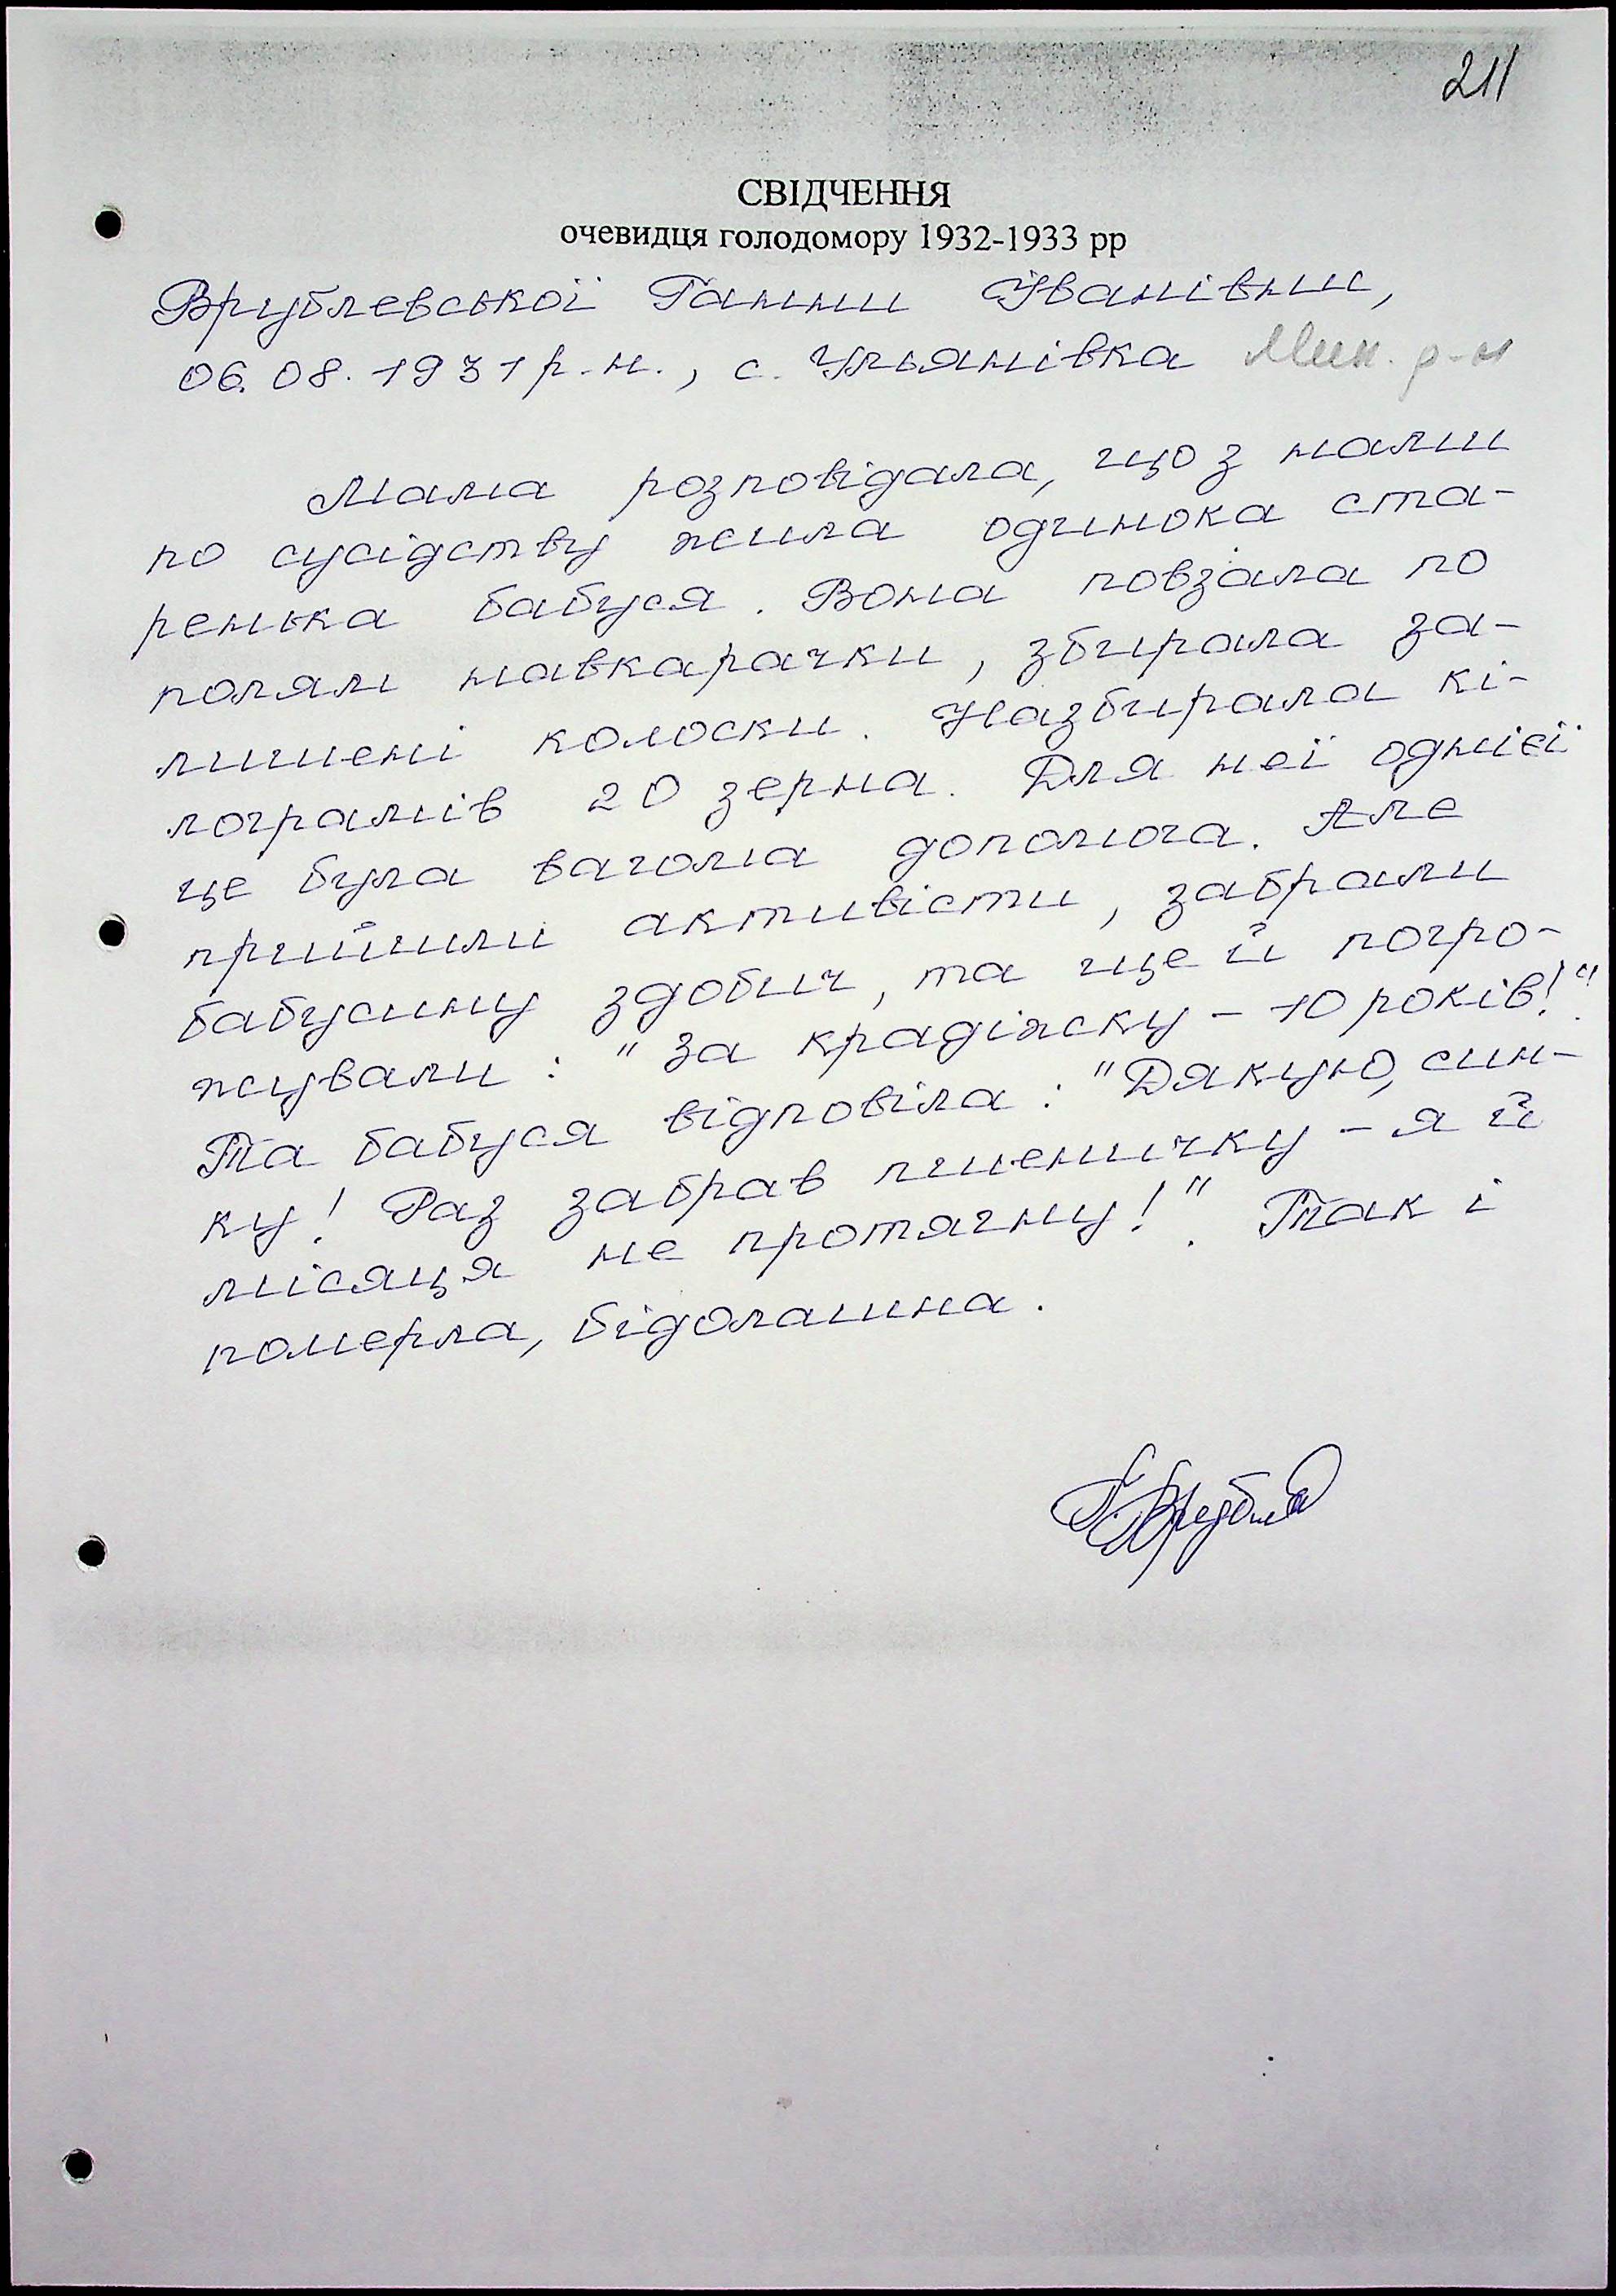 211
СВІДЧЕННЯ
очевидця голодомору 1932-1933 рр
Врублевської Ганни Іванівни,
06.08.1931 р.н., с. Ульянівка Мик. р-н
Мама розповідала, що з нами
по сусідству жила одинока ста-
ренька бабуся. Вона повзала по
полям навкарачки, збирала за-
лишені колоски. Назбирала кі-
лограмів 20 зерна. Для неї однієї
це була вагома допомога. Але
прийшли активісти, забрали
бабусину здобич, та ще й погро-
жували: "За крадіжку - 10 років!".
Та бабуся відповіла: "Дякую, син-
ку! Раз забрав пшеничку - я й
місяця не протягну!". Так і
померла, бідолашна.